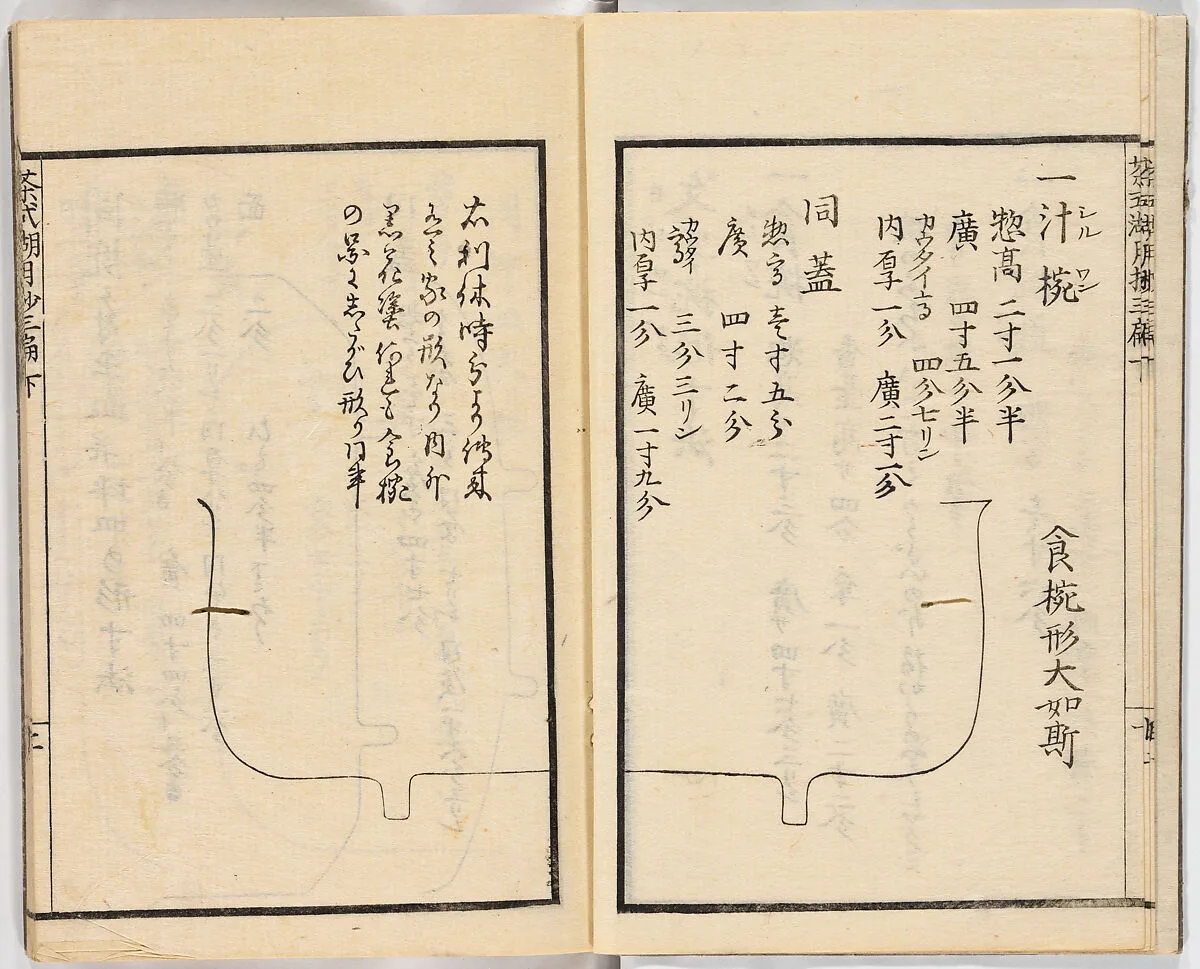 一汁椀
シルワン
惣髙 二寸一分半
廣 四寸五分半
カウタイ高 四分七リン
内厚一分 廣二寸一分
同蓋
惣高 壱寸五分
廣 四寸二分
カウタイ 三分三リン
内厚一分 廣一寸九分
食椀形大如斯
右利休時分より傳来
家の形なり内外
黒 塗 食椀
の 形 同
茶式湖月抄三編下